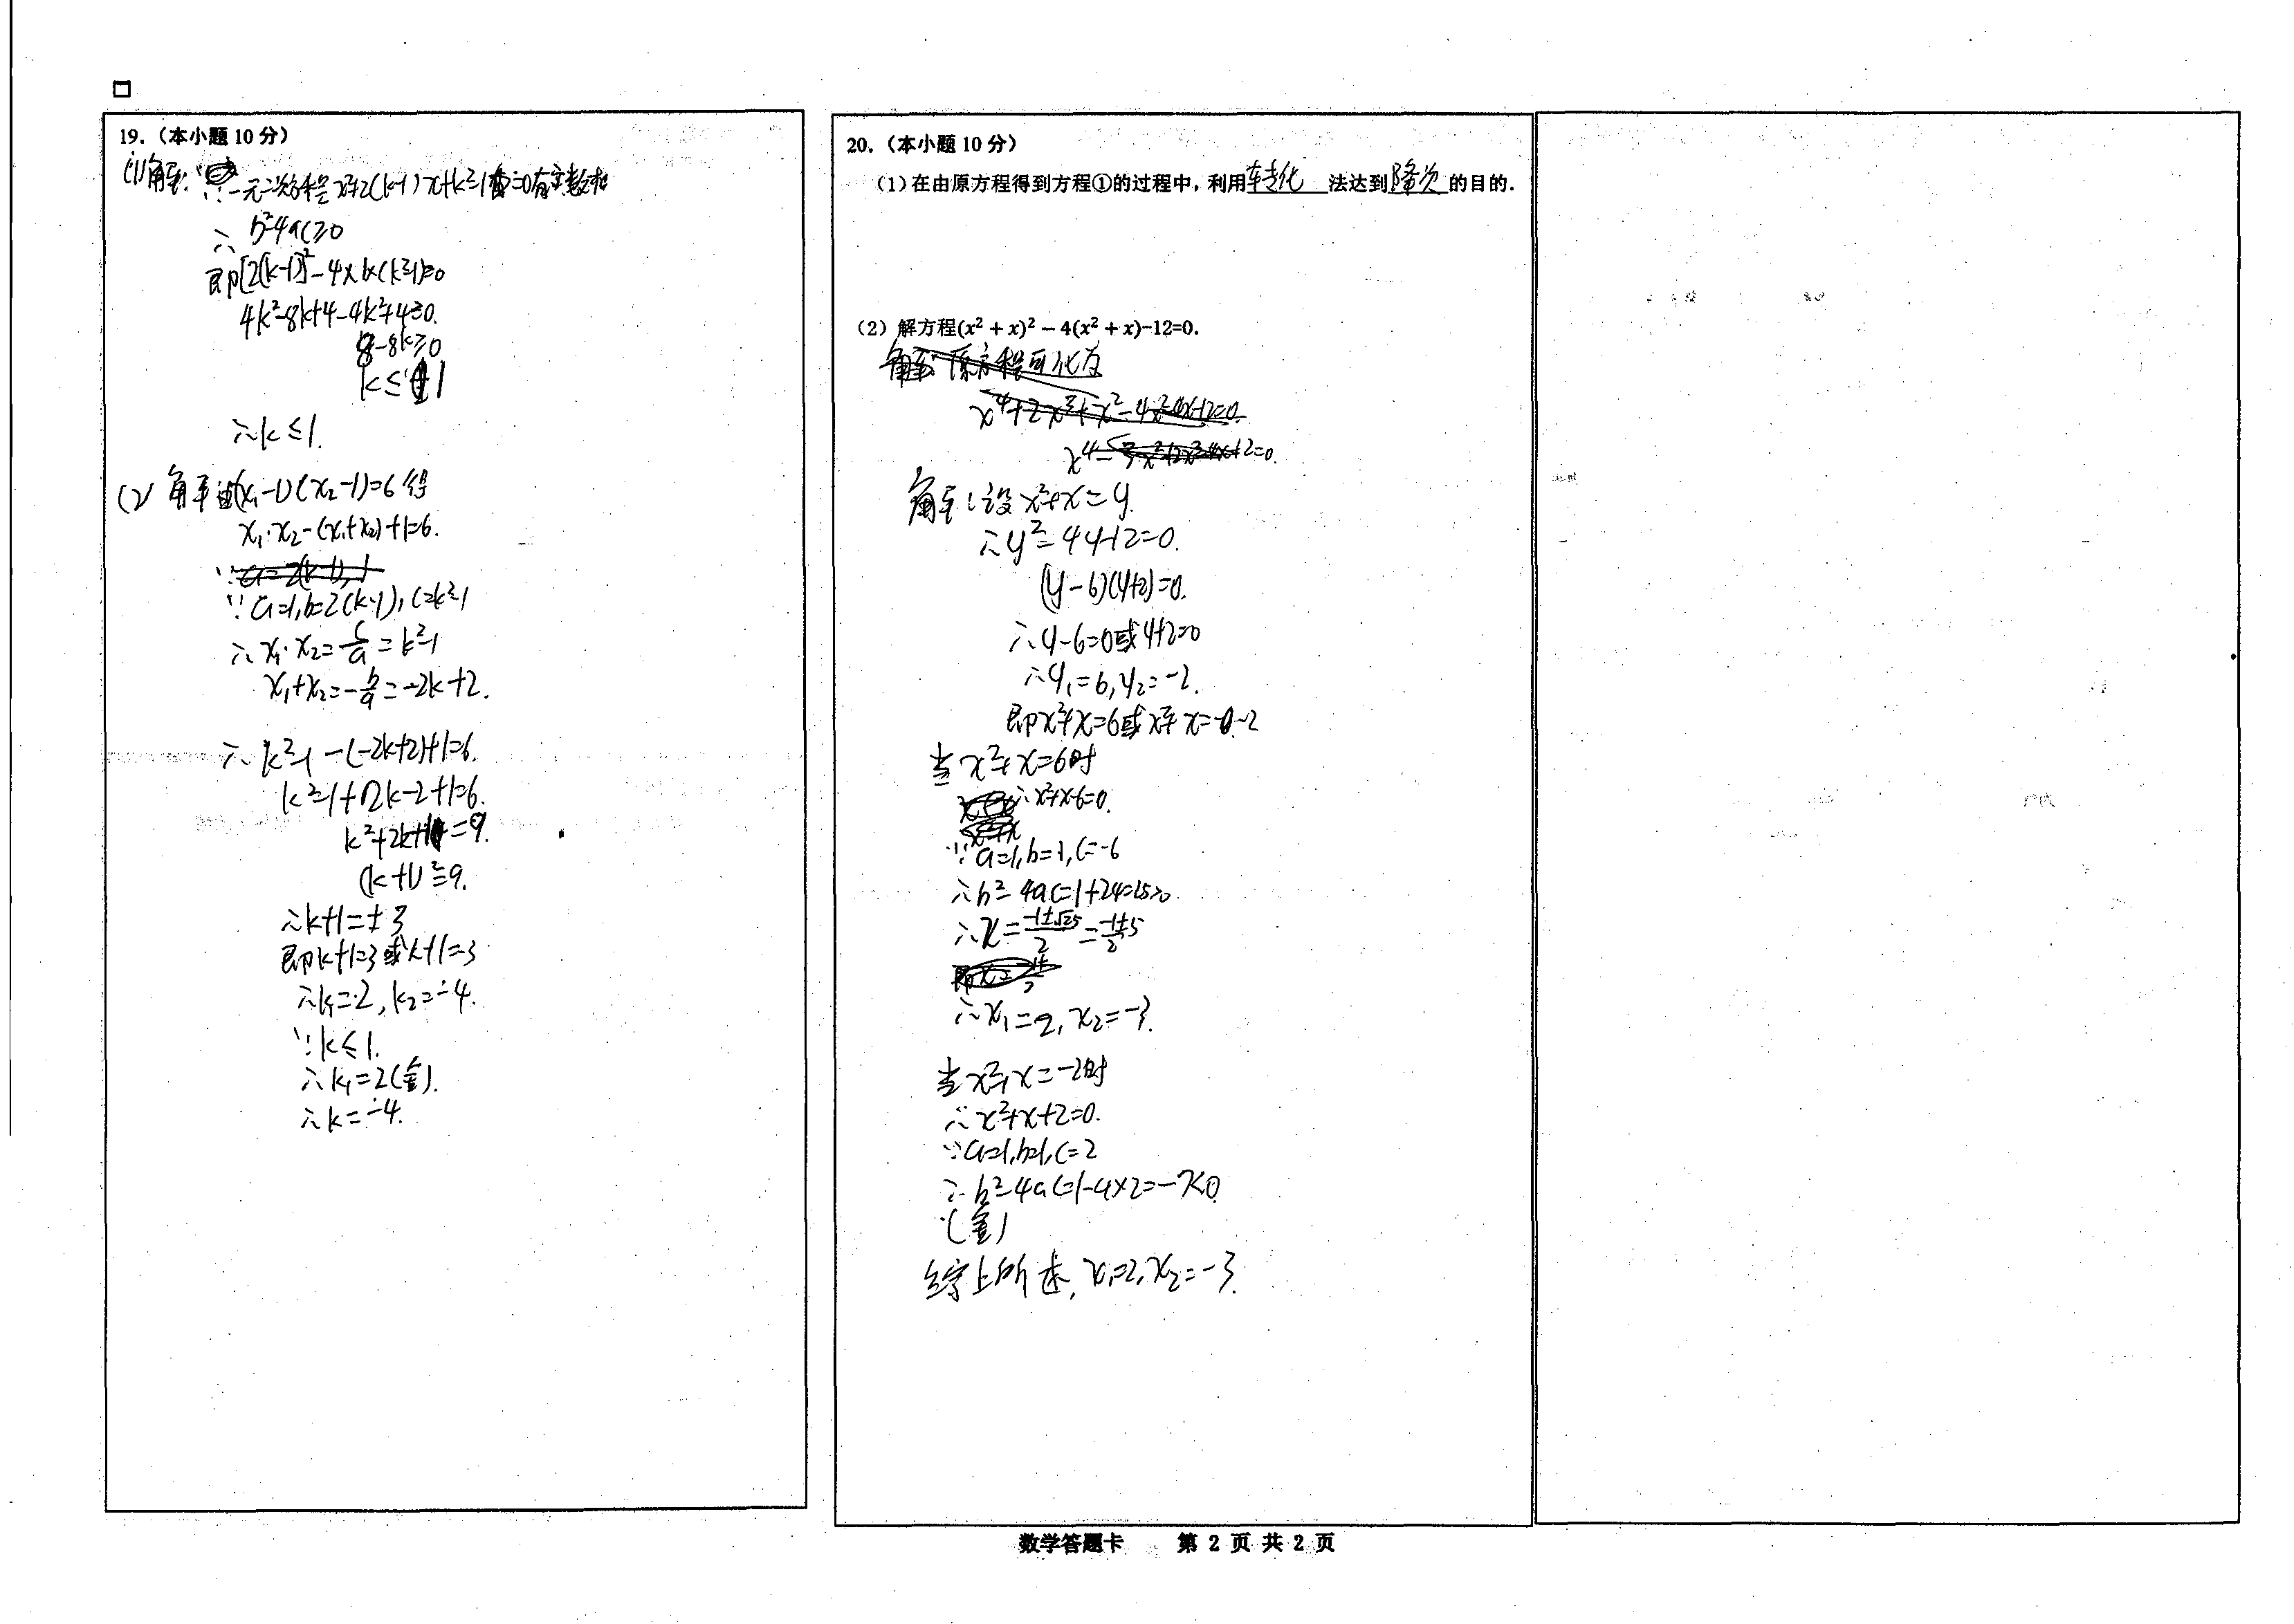 19.（本小题 10 分）
(1)解:∵一元二次方程x²+2(k-1)x+k²-1=0有实数根
∴ b²-4ac≥0
即[2(k-1)]²-4×1×(k²-1)≥0
4k²-8k+4-4k²+4≥0.
8-8k≥0
k≤1
∴k≤1.
(2) 解:由(x₁-1)(x₂-1)=6得
x₁·x₂-(x₁+x₂)+1=6.
∵a=1,b=2(k-1),c=k²-1
∴x₁·x₂=c/a=k²-1
x₁+x₂=-b/a=-2k+2.
∴k²-1-(-2k+2)+1=6.
k²-1+2k-2+1=6.
k²+2k+1=9.
(k+1)²=9.
∴k+1=±3
即k+1=3或k+1=-3
∴k₁=2,k₂=-4.
∵k≤1.
∴k₁=2(舍).
∴k=-4.
20.（本小题 10 分）
（1）在由原方程得到方程①的过程中，利用转化法达到降次的目的.
（2）解方程(x² + x)² － 4(x² + x)-12=0.
解:原方程可化为
x⁴+2x³+x²-4x²-4x-12=0.
解:设x²+x=y.
∴y²-4y-12=0.
(y-6)(y+2)=0.
∴y-6=0或y+2=0
∴y₁=6,y₂=-2.
即x²+x=6或x²+x=-2
当x²+x=6时
∴x²+x-6=0.
∵a=1,b=1,c=-6
∴b²-4ac=1+24=25>0.
∴x=(-1±√25)/2=(-1±5)/2
∴x₁=2,x₂=-3.
当x²+x=-2时
∴x²+x+2=0.
∵a=1,b=1,c=2
∴b²-4ac=1-4×2=-7<0.
(舍)
综上所述,x₁=2,x₂=-3.
数学答题卡 第 2 页 共 2 页